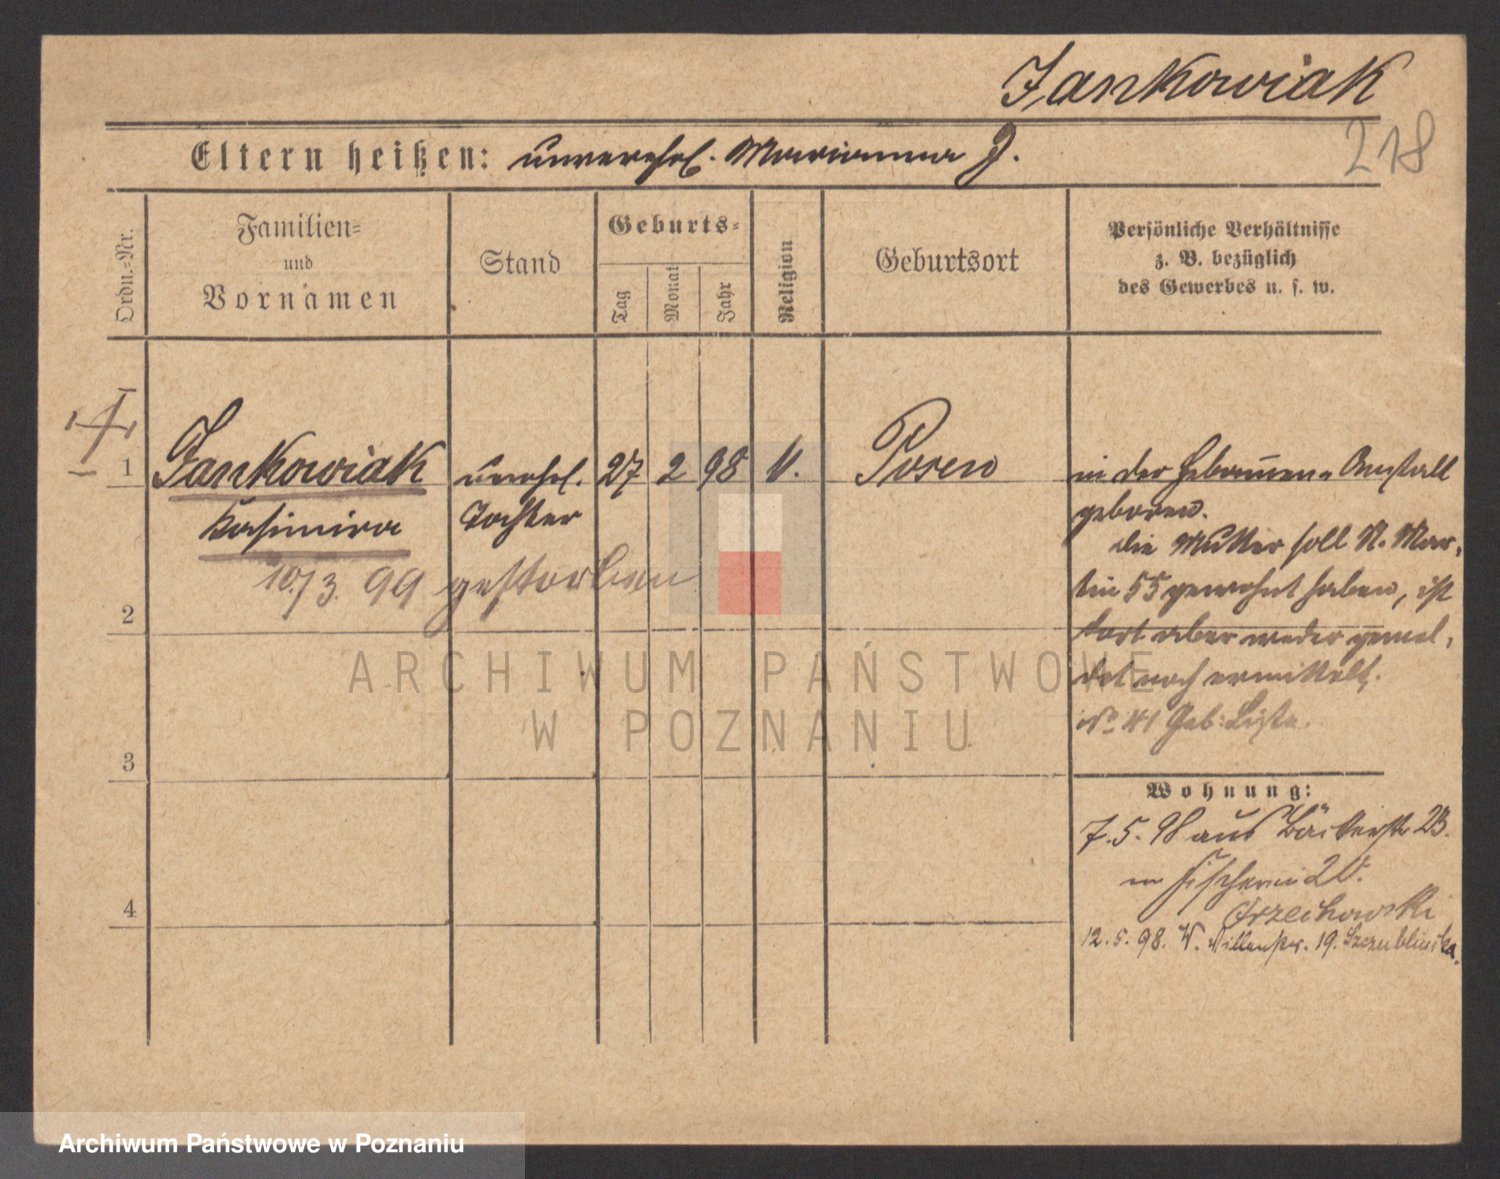 Jankowiak
218
Eltern heißen: unverehel. Marianna J.
Ordn.-Nr.
Familien-
und
Vornamen
Stand
Geburts-
Tag
Monat
Jahr
Religion
Geburtsort
Persönliche Verhältnisse
z. B. bezüglich
des Gewerbes u. s. w.
1 Jankowiak unehel. 27 2 98 k. Posen
Kasimira Tochter
10/3. 99 gestorben
in der Hebammen-Anstalt
geboren.
die Mutter soll St. Mar-
tin 55 gewohnt haben, ist
dort aber weder gemel-
det noch ermittelt.
No 41 Geb: Liste.
2
3
4
Wohnung:
7.5.98 aus Bäckerstr 23.
n Fischerei 20.
Orzechowski
12.5.98. W. 19.
ARCHIWUM PAŃSTWOWE
W POZNANIU
Archiwum Państwowe w Poznaniu